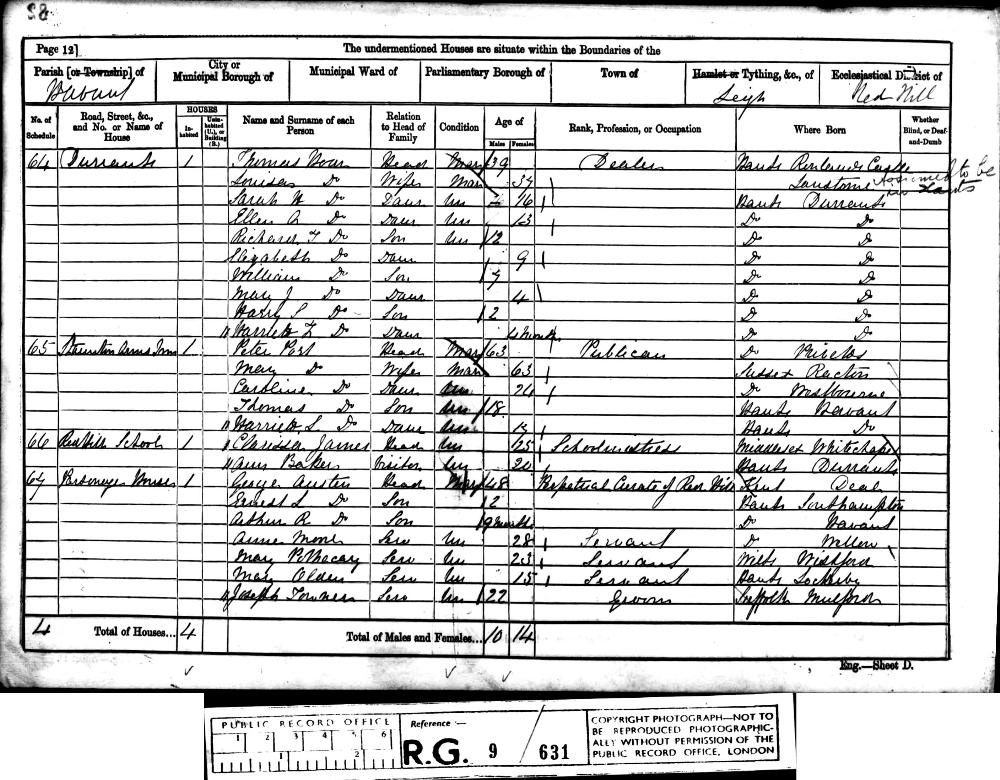 88
Page 12]
The undermentioned Houses are situate within the Boundaries of the
Parish [or Township] of
Havant
City or Municipal Borough of
Municipal Ward of
Parliamentary Borough of
Town of
Hamlet or Tything, &c., of
Leigh
Ecclesiastical District of
Red Hill
No. of Schedule
Road, Street, &c., and No. or Name of House
HOUSES
Inhabited
Uninhabited (U.), or Building (B.)
Name and Surname of each Person
Relation to Head of Family
Condition
Age of
Males
Females
Rank, Profession, or Occupation
Where Born
Whether Blind, or Deaf-and-Dumb
64 Durrants 1 Thomas Head Mar 39 Dealer Hants Castle
Louisa Do Wife Mar 37 assumed to be in Hants
Sarah Do Daur Un 16 Hants Durrants
Ellen A Do Daur Un 13 Do Do
Richard Do Son Un 12 Do Do
Elizabeth Do Daur 9 Do Do
William Do Son 7 Do Do
Mary J Do Daur 4 Do Do
Harry S Do Son 2 Do Do
Harriett Do Daur 4 months Do Do
65 Staunton Arms Inn 1 Peter Port Head Mar 63 Publican Do
Mary Do Wife Mar 63 Sussex Racton
Caroline Do Daur Un 24 Do Westbourne
Thomas Do Son Un 18 Hants Havant
Harriett S Do Daur Un Hants Do
66 Red Hill School 1 Clarissa James Head Un 25 Schoolmistress Middlesex Whitechapel
Ann Baker Visitor Un 20 Hants Durrants
67 Parsonage House 1 George Austen Head Mar 48 Perpetual Curate of Red Hill Kent Deal
Ernest L Do Son 2 Hants Southampton
Arthur R Do Son 9 months Do Havant
Anne Serv Un 28 Servant Do
Mary Serv Un 23 Servant Wilts Wishford
Mary Olden Serv Un 15 Servant Hants Lockerley
Joseph Serv Un 22 Groom Suffolk
4 Total of Houses... 4 Total of Males and Females... 10 14
Eng.—Sheet D.
PUBLIC RECORD OFFICE
1 2 3 4 5 6
1 2
Reference :—
R.G. 9 / 631
COPYRIGHT PHOTOGRAPH—NOT TO
BE REPRODUCED PHOTOGRAPHIC-
ALLY WITHOUT PERMISSION OF THE
PUBLIC RECORD OFFICE, LONDON